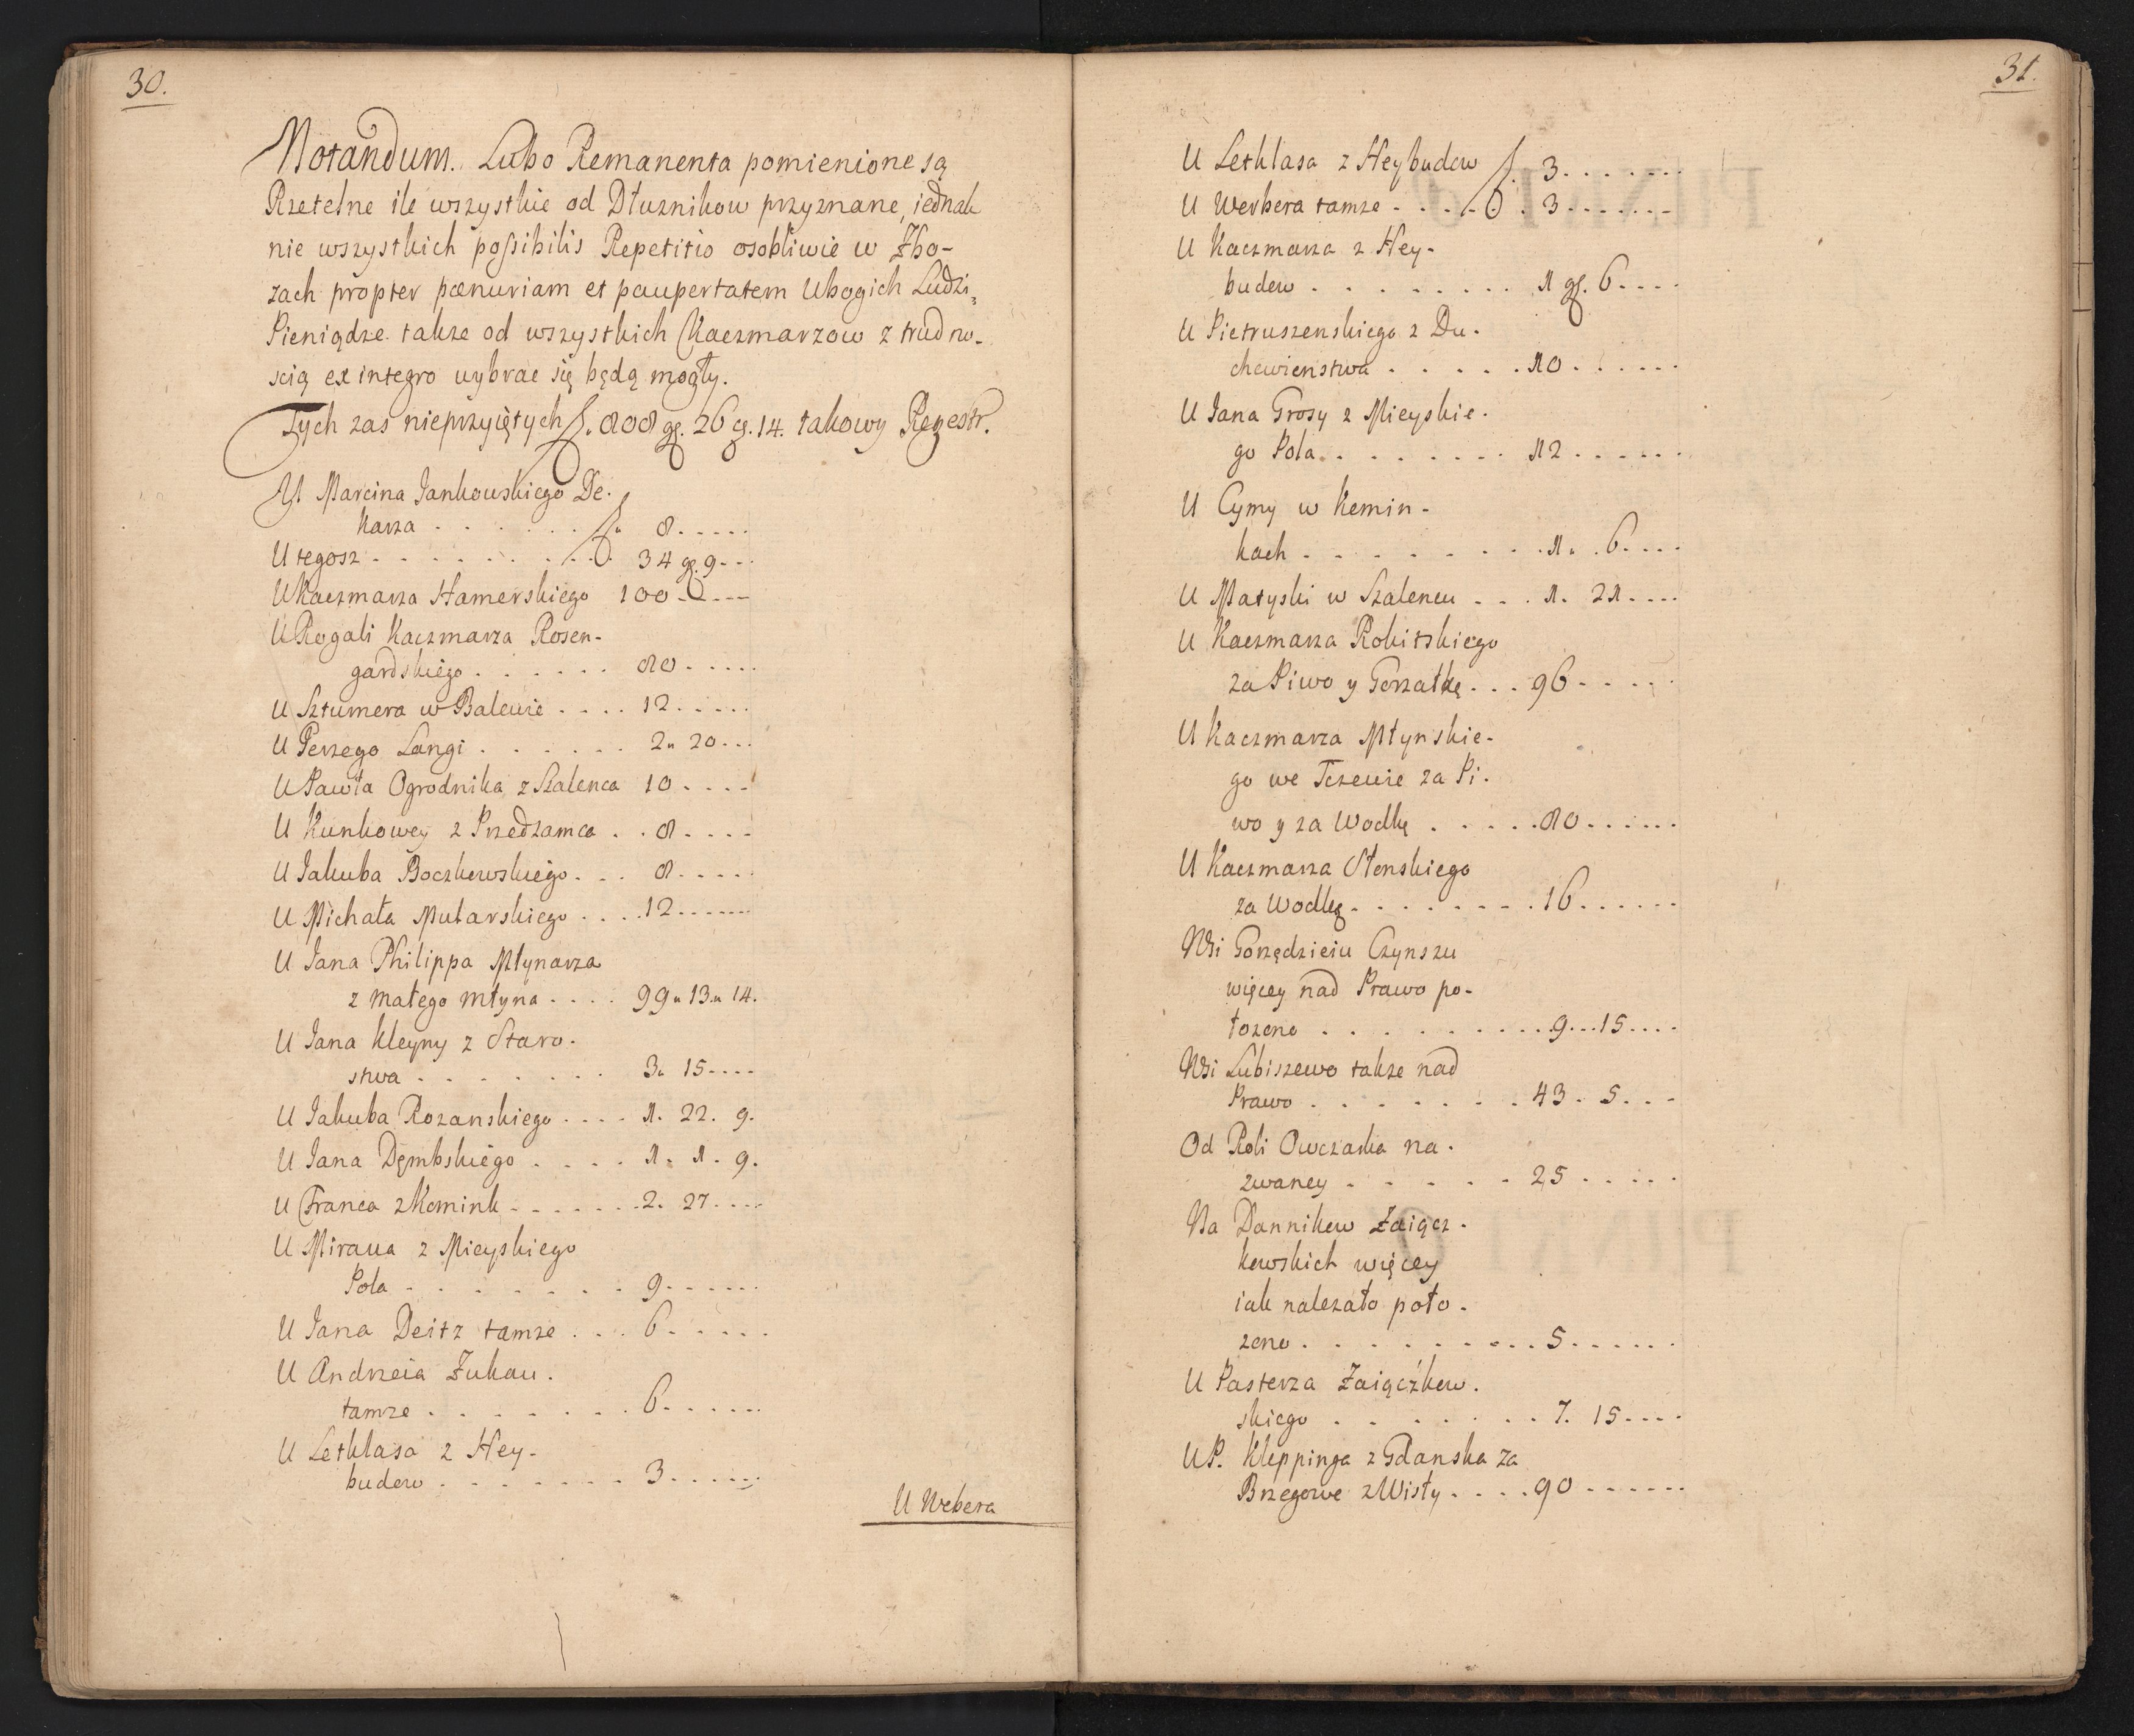 30.
Notandum. Lubo Remanenta pomienione są
Rzetelne ile wszystkie od Dłuznikow przyznane, iednak
nie wszystkich possibilis Repetitio osobliwie w Zbo-
zach propter pœnuriam et paupertatem Ubogich Ludzi,
Pieniądze takze od wszystkich Kaczmarzow z trudno-
scią ex integro wybrac się będą mogły.
Tych zas nieprzyiętych f. 808 gr. 26 ₰. 14. takowy Regestr.
U Marcina Jankowskiego De-
karza . . . . . . f. 8 . . . . .
U tegosz . . . . . . . . . 34 gr. 9 - - -
U Kaczmarza Hamerskiego 100 - - - -
U Rogali Kaczmarza Rosen-
gardskiego . . . . . . 80 . . . . .
U Sztumera w Balewie . . . . 12 . . . . .
U Perzego Langi . . . . . . 2 " 20 . . .
U Pawła Ogrodnika z Szalenca 10 . . . .
U Kunkowey z Przedzamca . . 8 . . . .
U Jakuba Boczkowskiego . . . 8 . . . . .
U Michała Mutarskiego . . . . 12 . . . . . .
U Jana Philippa Młynarza
z małego młyna . . . . 99 " 13 " 14.
U Jana Kleyny z Staro-
stwa . . . . . . . 3 " 15 . . . .
U Jakuba Rozanskiego . . . . 1. 22. 9.
U Jana Dęmbskiego . . . . 1. 1. 9.
U Franca z Komink . . . . . . . 2. 27 . . . .
U Miraua z Mieyskiego
Pola . . . . . . . . 9 . . . . . .
U Jana Deitz tamze . . . 6 . . . . .
U Andrzeia Zukau.
tamze . . . . . . . . 6 . . . . . .
U Letklasa z Hey-
budow . . . . . . . 3 . . . . . .
U Webera
31.
U Letklasa z Heybudow f. 3 . . . . . . .
U Werbera tamze . . . . . . 3 . . . . . . .
U Kaczmarza z Hey-
budow . . . . . . . . . 1 gr. 6 . . . .
U Pietruszenskiego z Du-
chowienstwa . . . . . 10 . . . . . .
U Jana Grosy z Mieyskie-
go Pola . . . . . . . . 12 . . . . . .
U Cymy w Komin-
kach . . . . . . . . . 1. . 6 . . . .
U Matyski w Szalencu . . . 1. 21 . . . .
U Kaczmarza Rokitskiego
za Piwo y Gorzałkę . . . 96 . . . . .
U Kaczmarza Młynskie-
go we Tczewie za Pi-
wo y za Wodkę . . . . . 80 . . . . . .
U Kaczmarza Stenskiego
za Wodkę . . . . . . . . 16 . . . . . .
Wsi Gorzędzieiu Czynszu
więcey nad Prawo po-
łozono . . . . . . . . . 9 . . . 15 . . . .
Wsi Lubiszewo takze nad
Prawo . . . . . . . 43 . 5 . . .
Od Roli Owczarka na-
zwaney . . . . . . 25 . . . . .
Na Dannikow Zaiącz-
kowskich więcey
iak nalezało poło-
zono . . . . . . . . . 5 . . . . . .
U Pasterza Zaiączkow-
skiego . . . . . . . 7. 15 . . . .
U P. Kleppinga z Gdanska za
Brzegowe z Wisły . . . . 90 . . . . . .